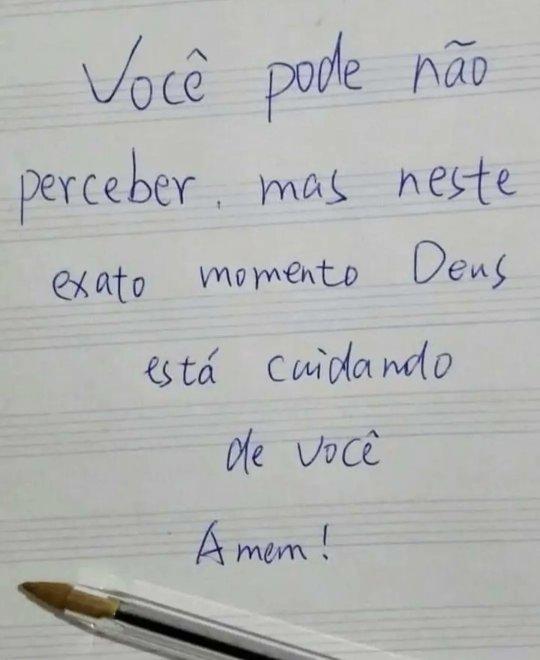 Você pode não
perceber, mas neste
exato momento Deus
está cuidando
de você
Amem!